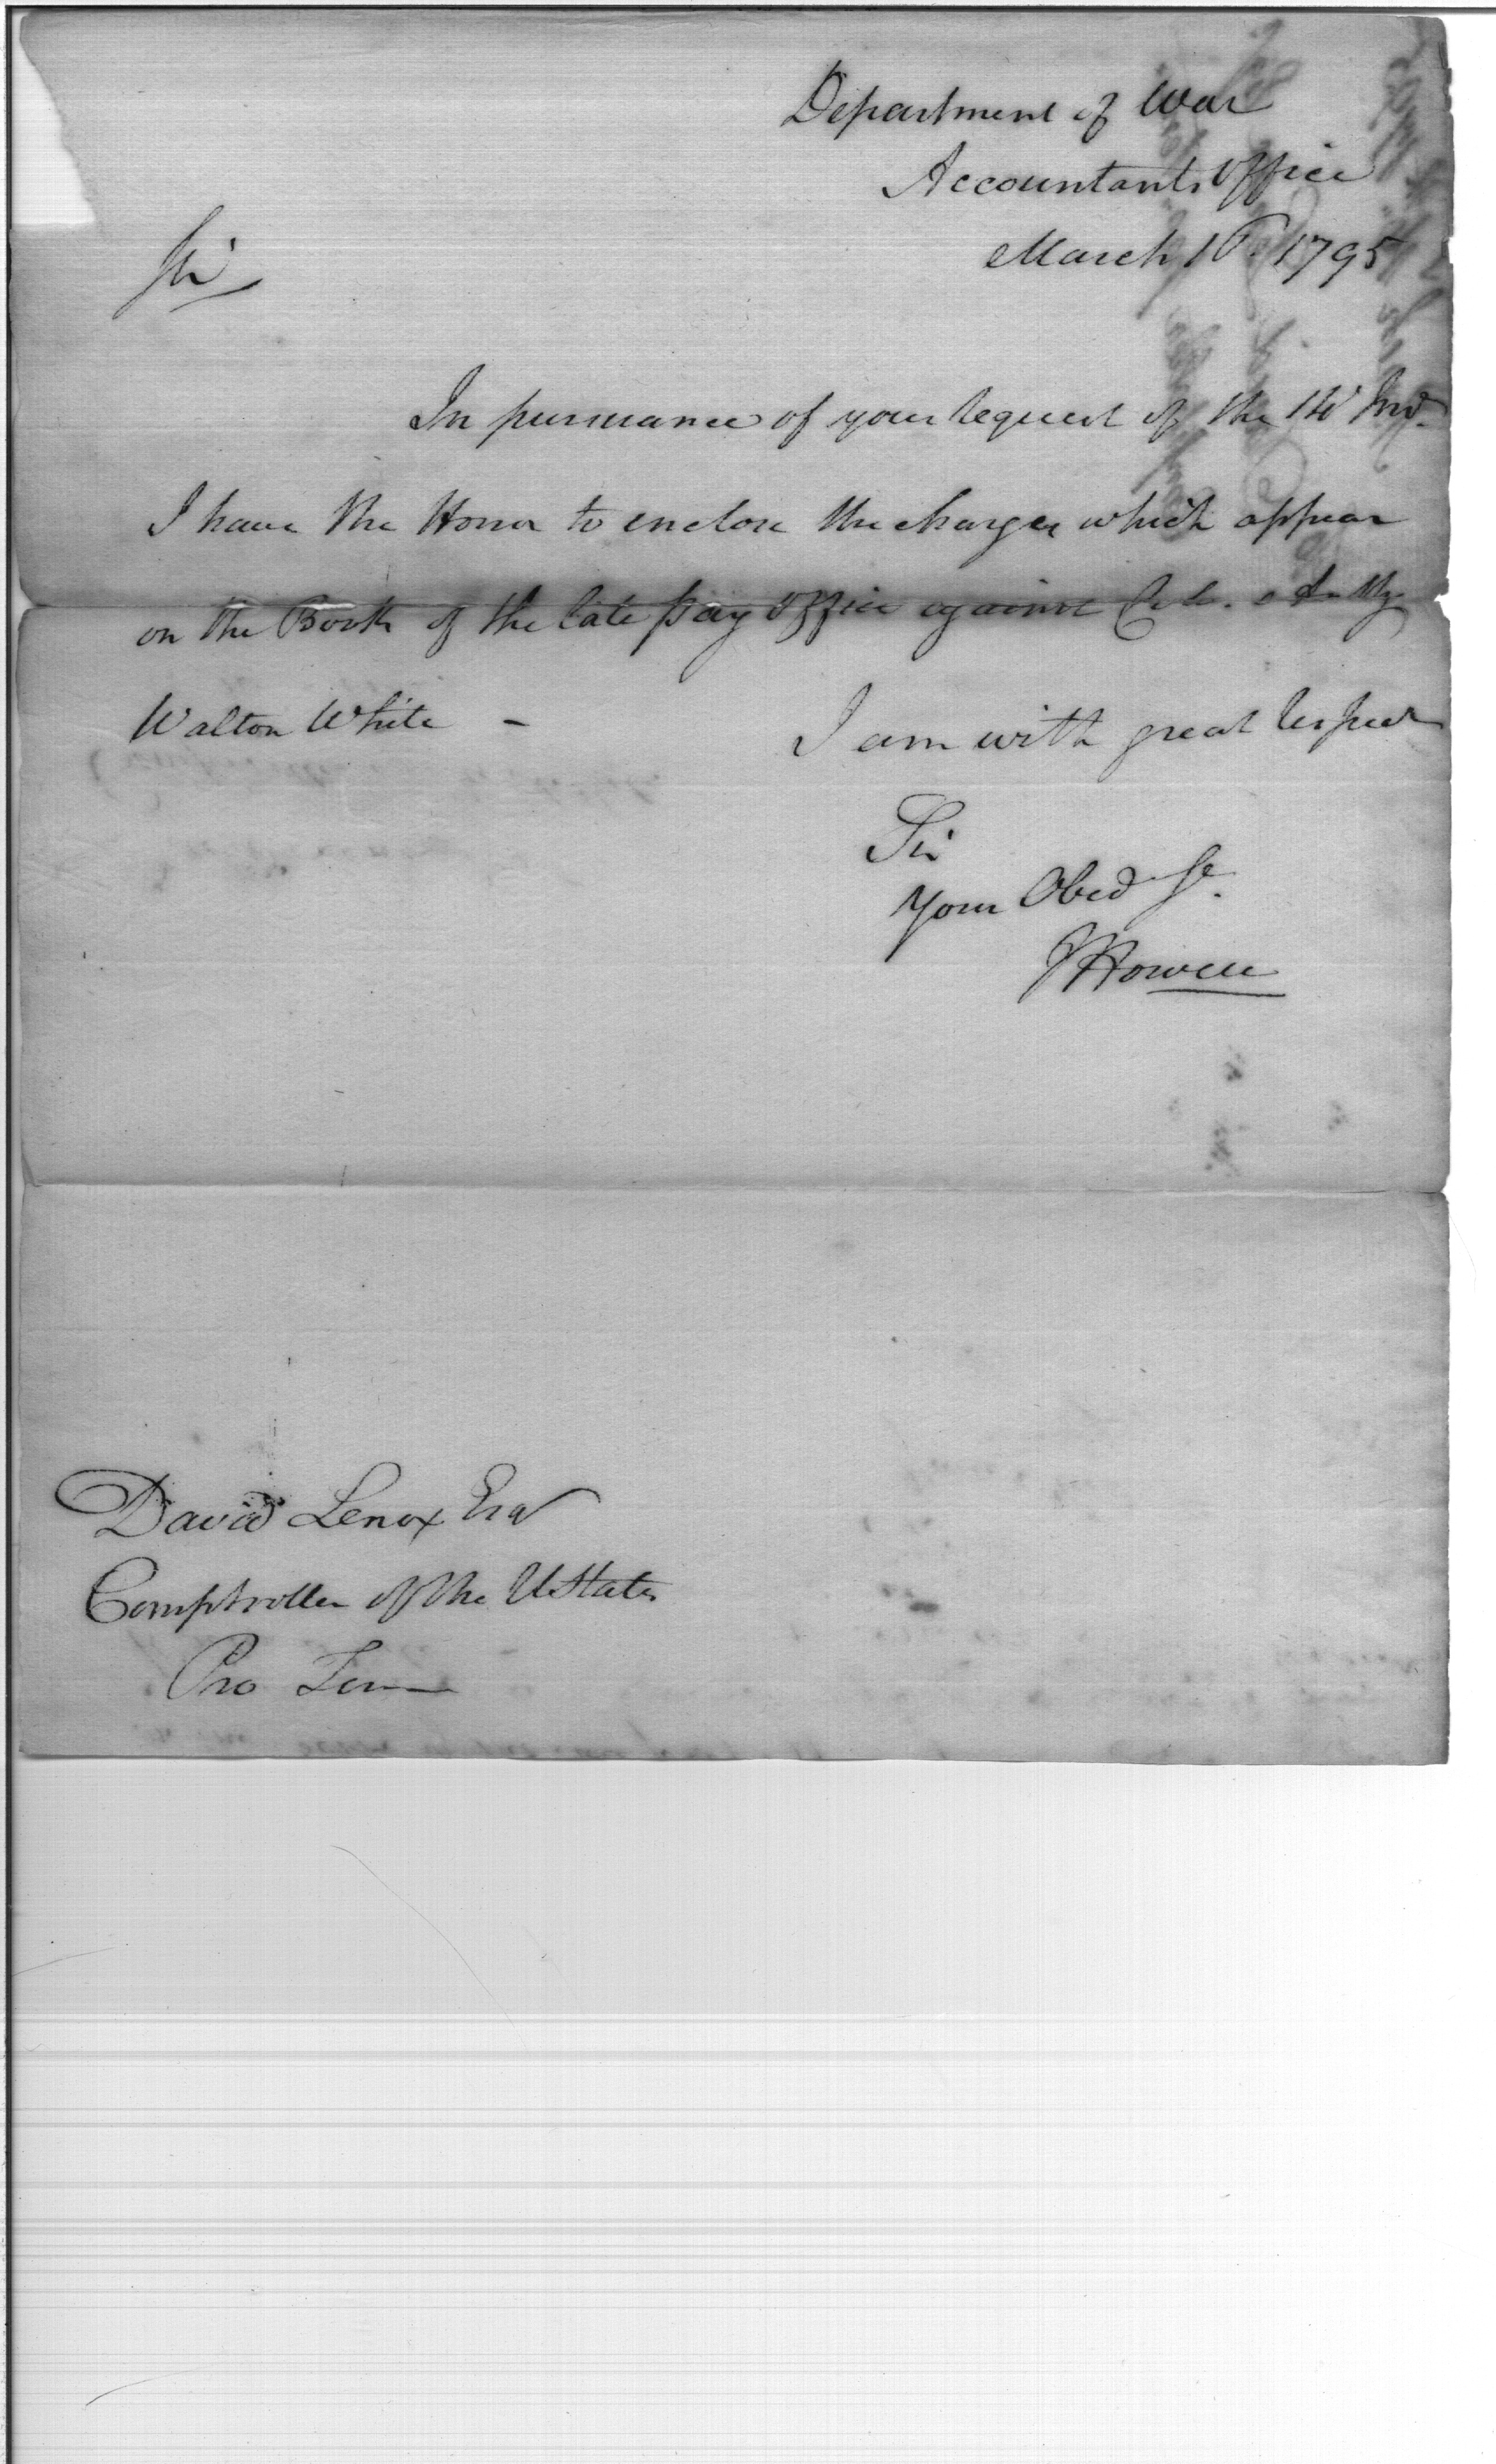 Department of War
Accountants Office
March 16. 1795
Sir
In pursuance of your request of the Inst.
I have the Honor to enclose the charges which appear
on the Books of the late pay office against Colo. Anthy
Walton White –
I am with great respect
Sir
Your Obed Se.
JHowell
David Lenox Esq
Comptroller of the UStates
Pro Tem